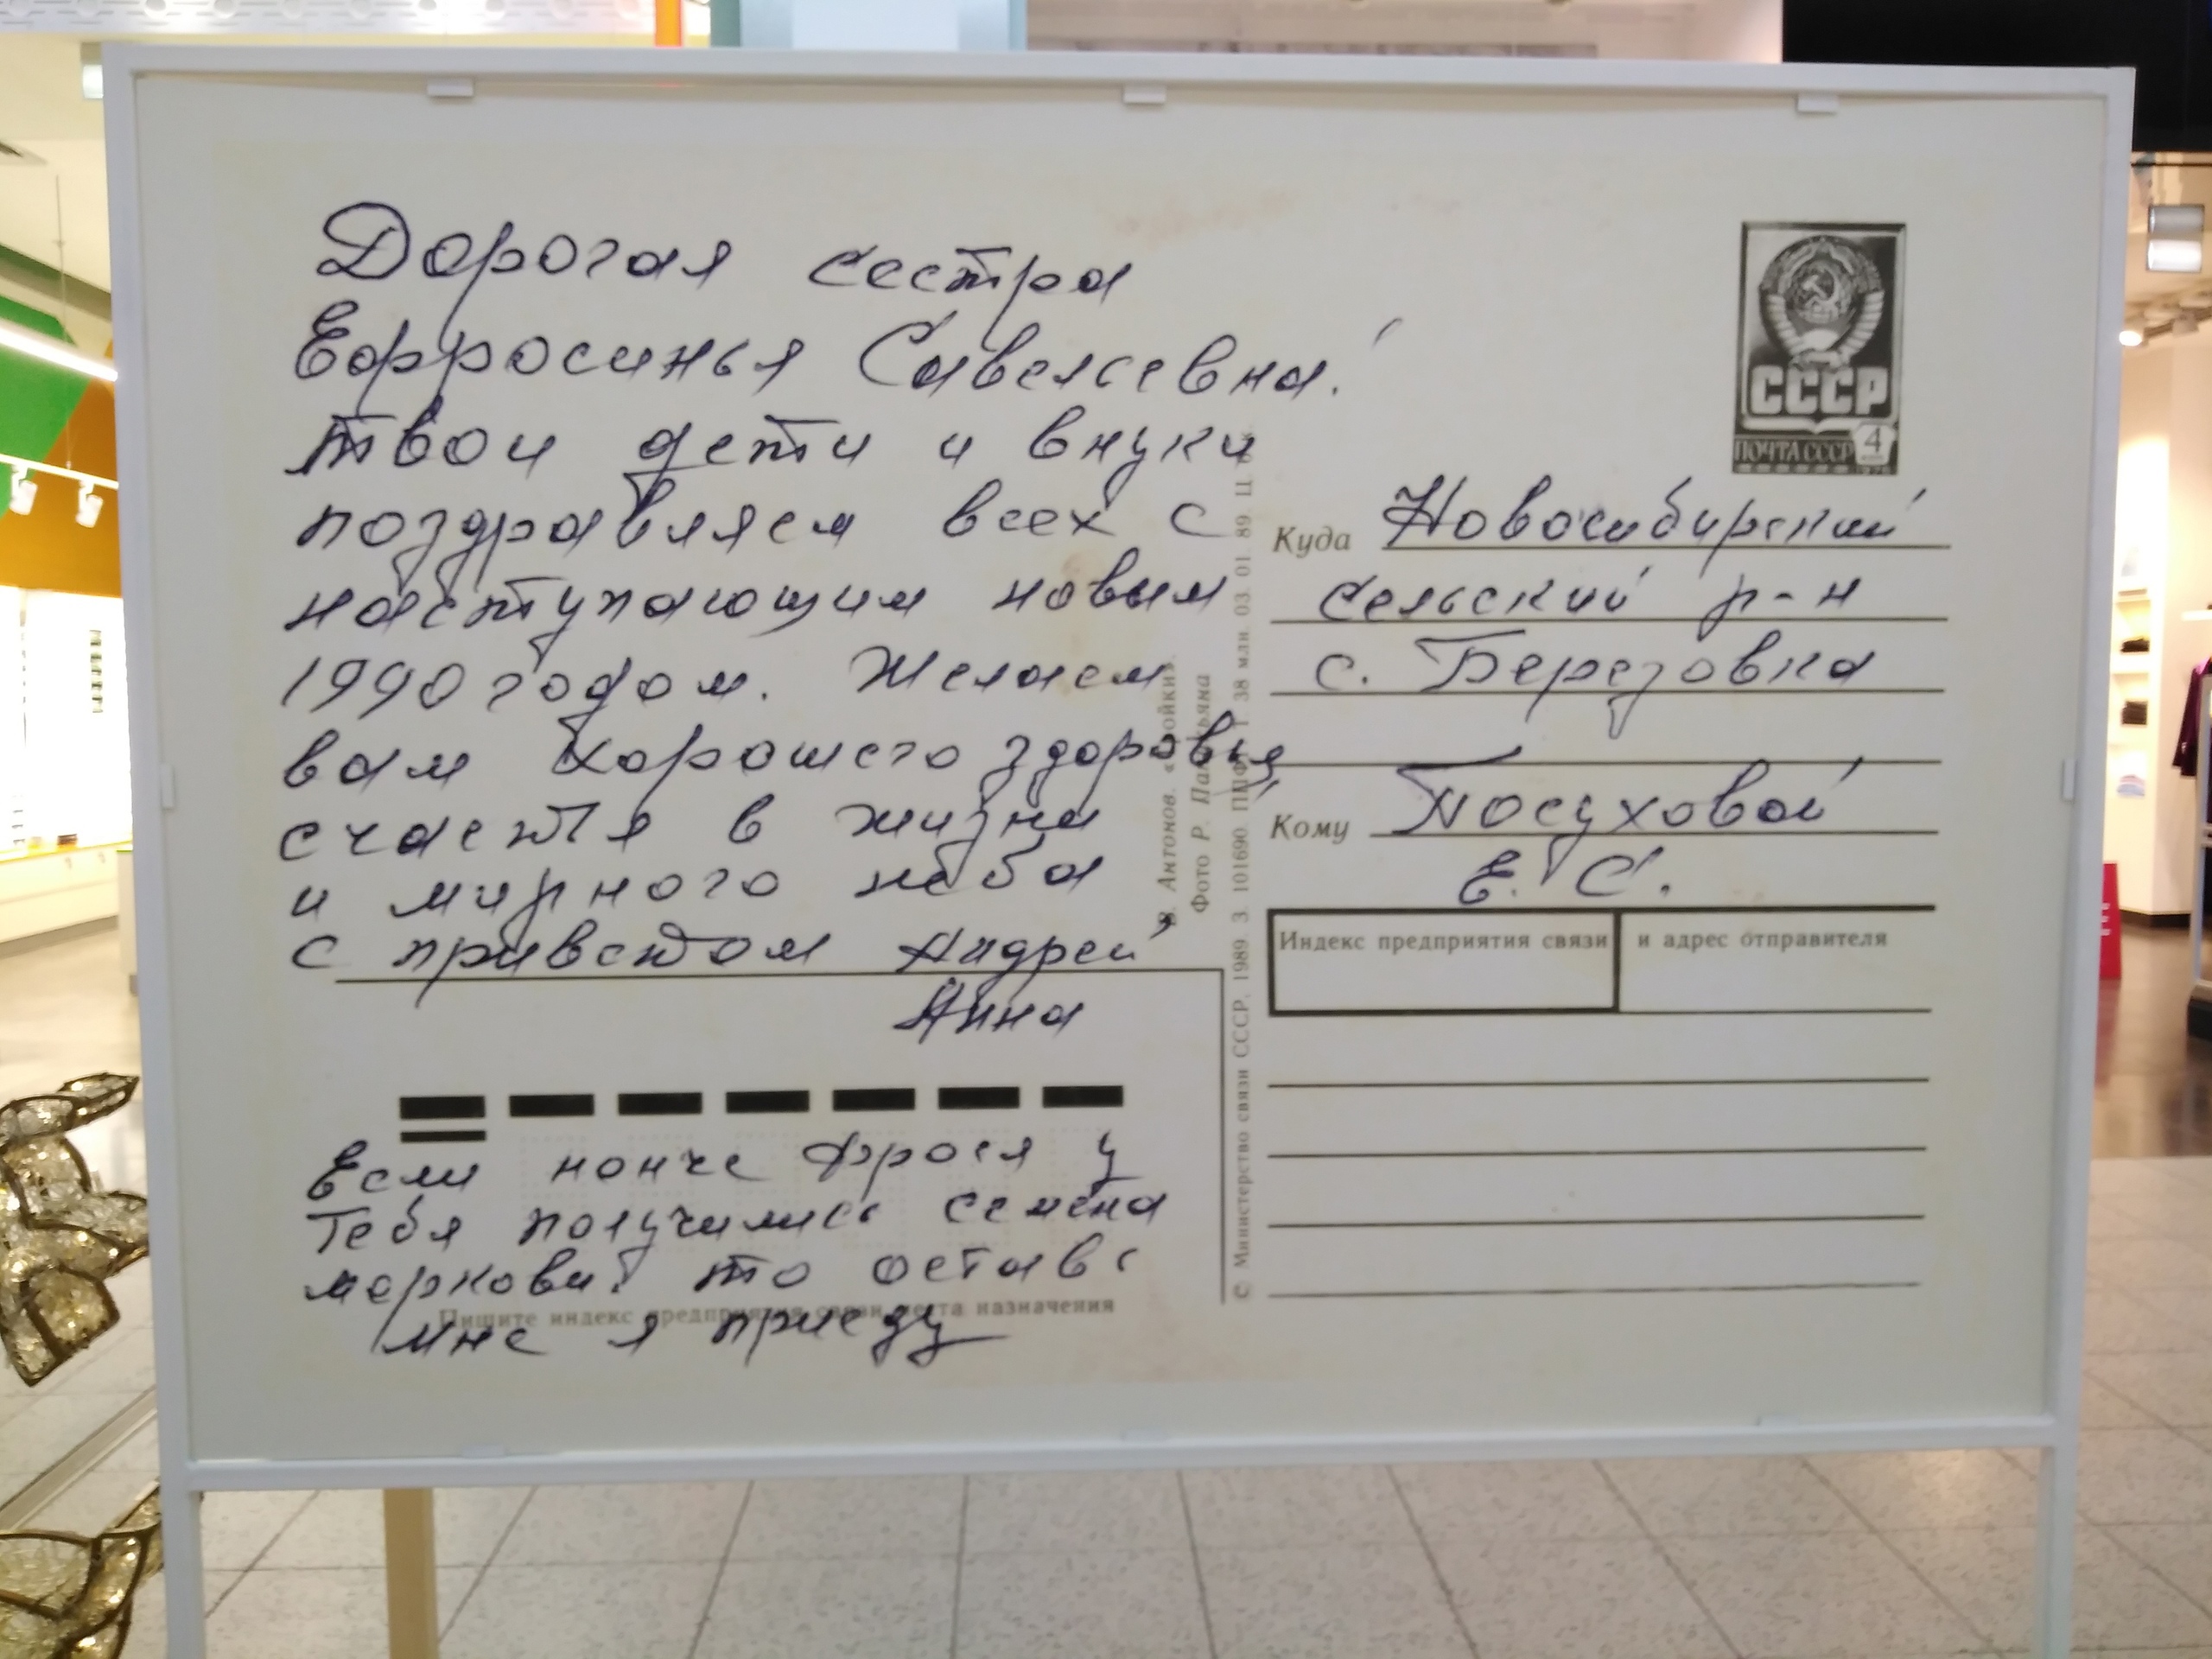 Дорогая сестра
Ефросинья Савельевна!
твои дети и внуки
поздравляем всех с
наступающим новым
1990 годом. Желаем
вам хорошего здоровья,
счастья в жизни
и мирного неба
с приветом Андрей,
Анна
Если нонче Фрося у
тебя получились семена
моркови, то оставь
мне я приеду
Пишите индекс предприятия связи места назначения
В. Антонов. «Тройки».
Фото Р.
© Министерство связи СССР, 1989. З. 101690. ППФГ. Т 38 млн. 03. 01. 89. Ц.
СССР
ПОЧТА СССР 4
Куда Новосибирский
сельский р-н
с. Березовка
Кому Посуховой
Е. С.
Индекс предприятия связи и адрес отправителя